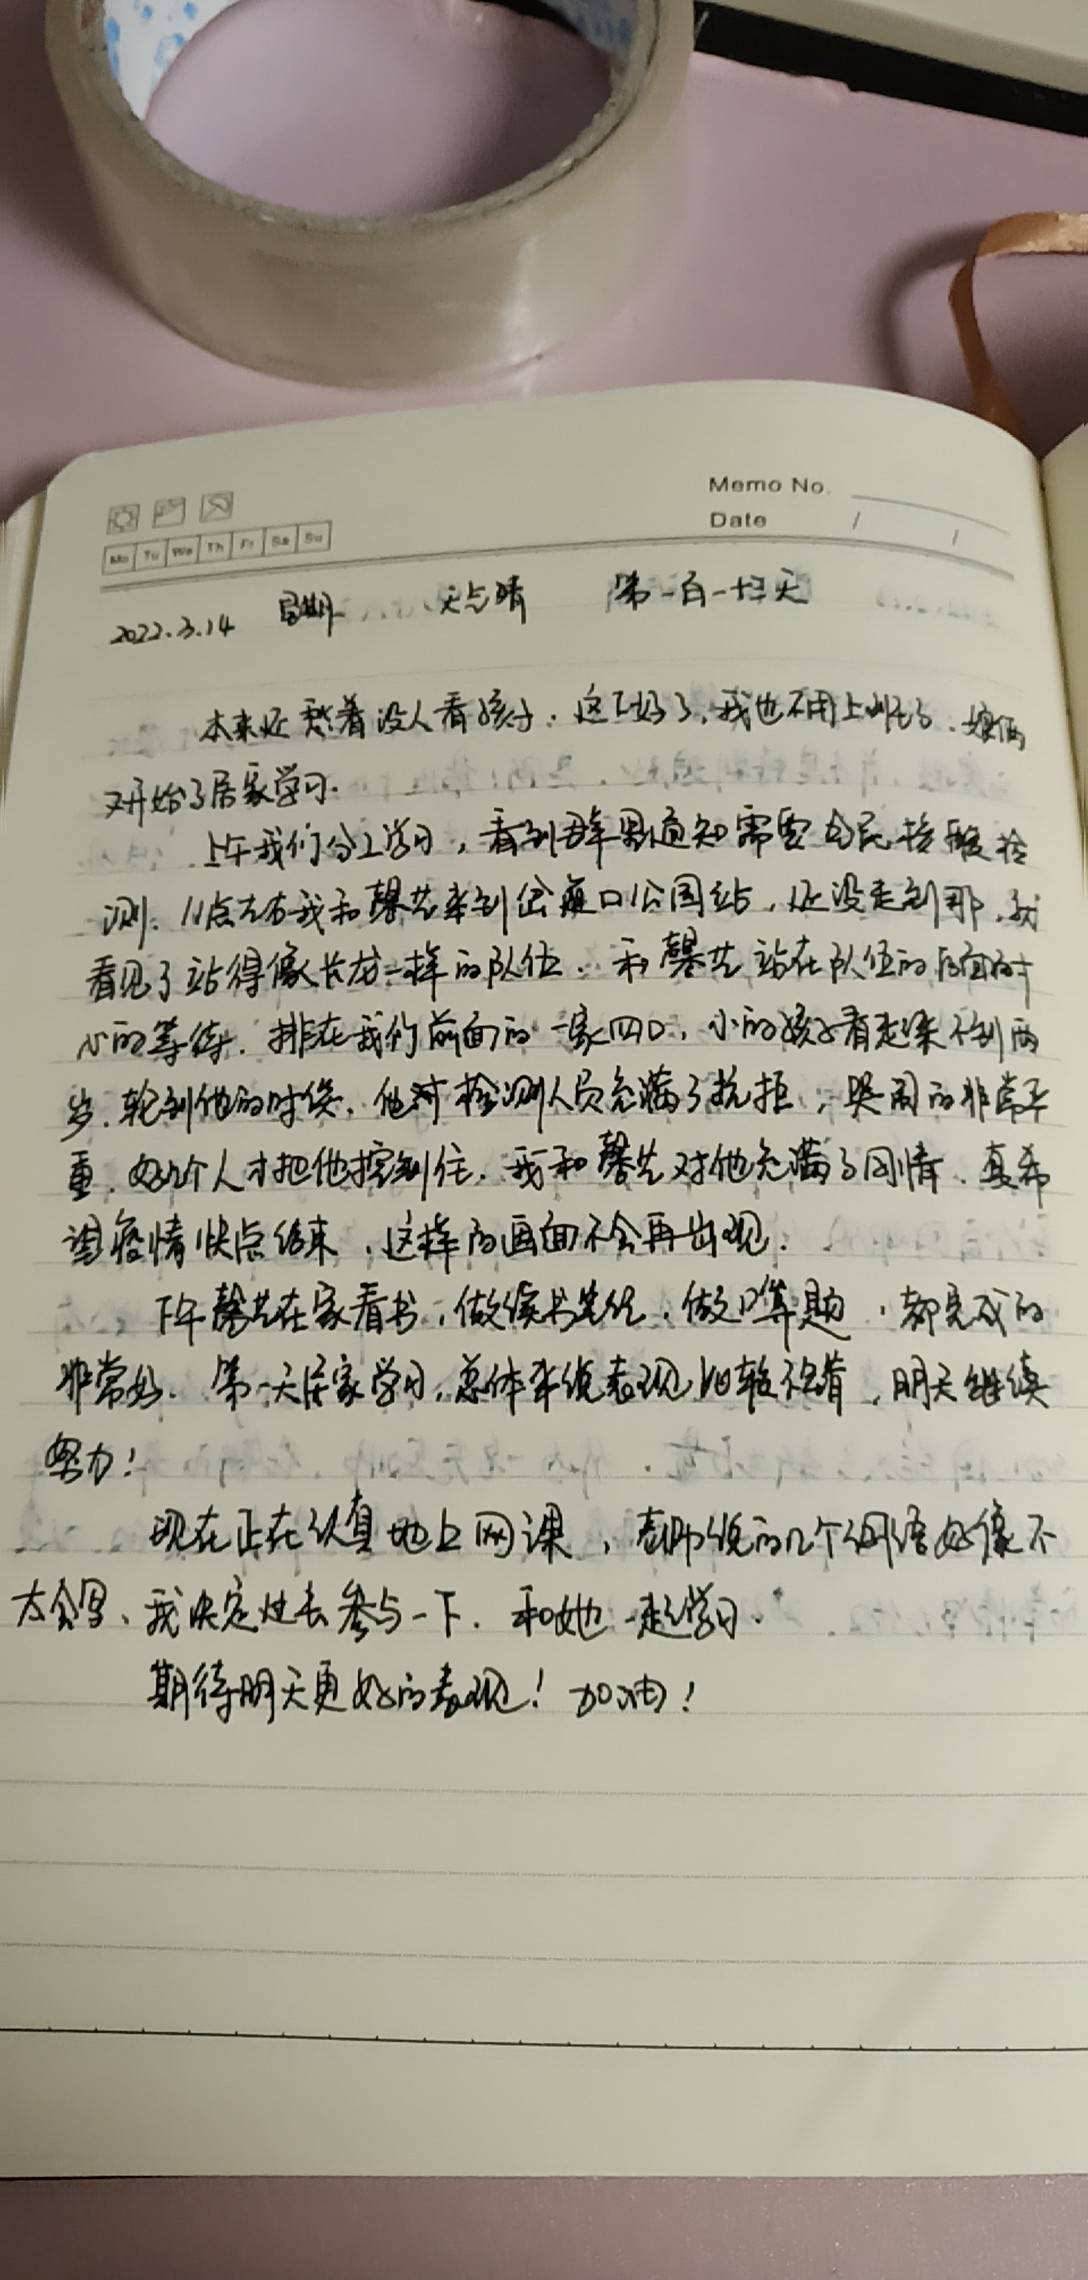 Memo No.
Date / /
Mo Tu We Th Fr Sa Su
2022.3.14 星期一 天气晴 第一百一十三天
本来还愁着没人看孩子,这下好了,我也不用上班了,娘俩
又开始了居家学习.
上午我们分工学习,看到群里通知需要全民核酸检
测.11点左右我和馨艺来到岔道口公园站,还没走到那,就
看见了站得像长龙一样的队伍.和馨艺站在队伍的后面耐
心的等待.排在我们前面的一家四口,小的孩子看起来不到两
岁.轮到他的时候,他对检测人员充满了抗拒,哭闹的非常严
重,好几个人才把他控制住.我和馨艺对他充满了同情.真希
望疫情快点结束,这样的画面不会再出现.
下午馨艺在家看书,做读书笔记,做口算题,都完成的
非常好.第一天居家学习,总体来说表现比较不错,明天继续
努力!
现在正在认真地上网课,老师说的几个词语好像不
太会写、我决定过去参与一下.和她一起学习.
期待明天更好的表现!加油!